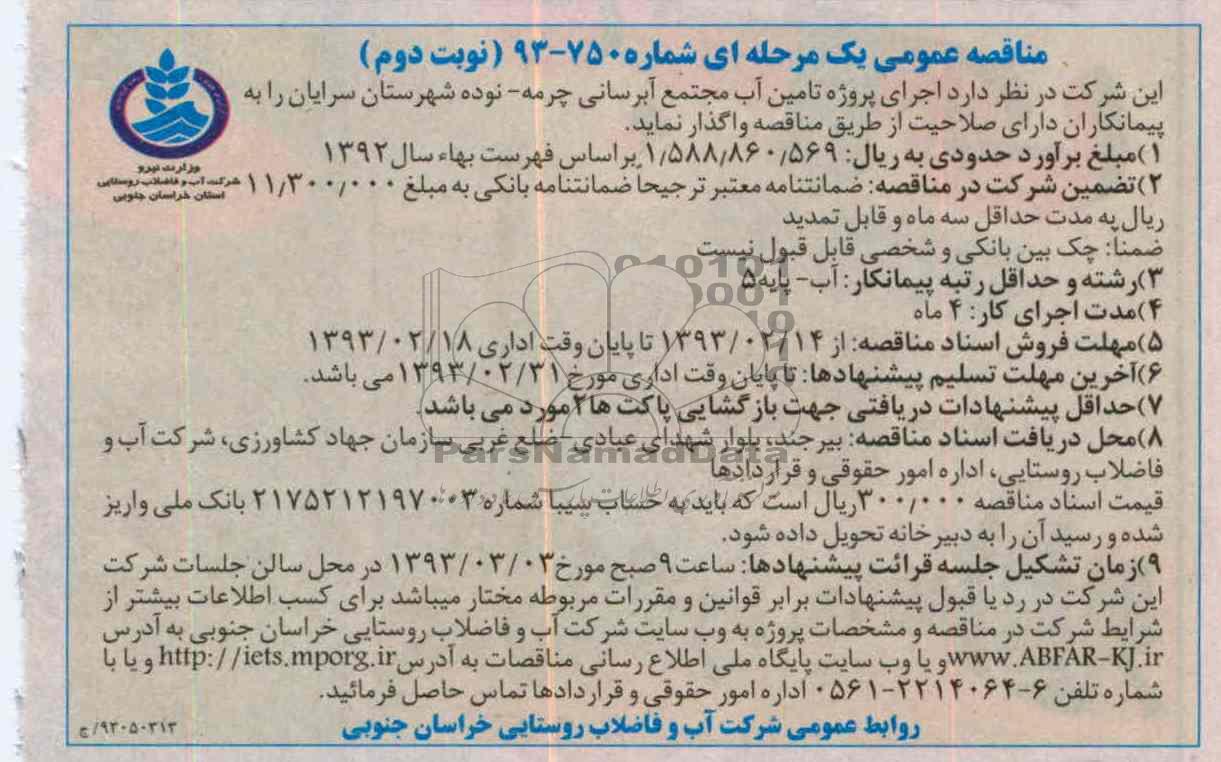 مناقصه عمومی یک مرحله ای شماره ۷۵۰-۹۳ (نوبت دوم)
این شرکت در نظر دارد اجرای پروژه تامین آب مجتمع آبرسانی چرمه- نوده شهرستان سرایان را به
پیمانکاران دارای صلاحیت از طریق مناقصه واگذار نماید.
۱)مبلغ برآورد حدودی به ریال: ۱٫۵۸۸٫۸۶۰٫۵۶۹ براساس فهرست بهاء سال ۱۳۹۲
۲)تضمین شرکت در مناقصه: ضمانتنامه معتبر ترجیحا ضمانتنامه بانکی به مبلغ ۱۱٫۳۰۰٫۰۰۰
ریال به مدت حداقل سه ماه و قابل تمدید
ضمنا: چک بین بانکی و شخصی قابل قبول نیست
۳)رشته و حداقل رتبه پیمانکار: آب- پایه۵
۴)مدت اجرای کار: ۴ ماه
۵)مهلت فروش اسناد مناقصه: از ۱۳۹۳/۰۲/۱۴ تا پایان وقت اداری ۱۳۹۳/۰۲/۱۸
۶)آخرین مهلت تسلیم پیشنهادها: تا پایان وقت اداری مورخ ۱۳۹۳/۰۲/۳۱ می باشد.
۷)حداقل پیشنهادات دریافتی جهت بازگشایی پاکت ها ۲مورد می باشد.
۸)محل دریافت اسناد مناقصه: بیرجند، بلوار شهدای عبادی-ضلع غربی سازمان جهاد کشاورزی، شرکت آب و
فاضلاب روستایی، اداره امور حقوقی و قراردادها
قیمت اسناد مناقصه ۳۰۰٫۰۰۰ریال است که باید به حساب سیبا شماره ۲۱۷۵۲۱۲۱۹۷۰۰۳ بانک ملی واریز
شده و رسید آن را به دبیرخانه تحویل داده شود.
۹)زمان تشکیل جلسه قرائت پیشنهادها: ساعت۹صبح مورخ۱۳۹۳/۰۳/۰۳ در محل سالن جلسات شرکت
این شرکت در رد یا قبول پیشنهادات برابر قوانین و مقررات مربوطه مختار میباشد برای کسب اطلاعات بیشتر از
شرایط شرکت در مناقصه و مشخصات پروژه به وب سایت شرکت آب و فاضلاب روستایی خراسان جنوبی به آدرس
www.ABFAR-KJ.ir و یا وب سایت پایگاه ملی اطلاع رسانی مناقصات به آدرس http://iets.mporg.ir و یا با
شماره تلفن ۶-۲۲۱۴۰۶۴-۰۵۶۱ اداره امور حقوقی و قراردادها تماس حاصل فرمائید.
روابط عمومی شرکت آب و فاضلاب روستایی خراسان جنوبی
۹۳۰۵۰۳۱۳/ ج
وزارت نیرو
شرکت آب و فاضلاب روستایی
استان خراسان جنوبی
ParsNamadData